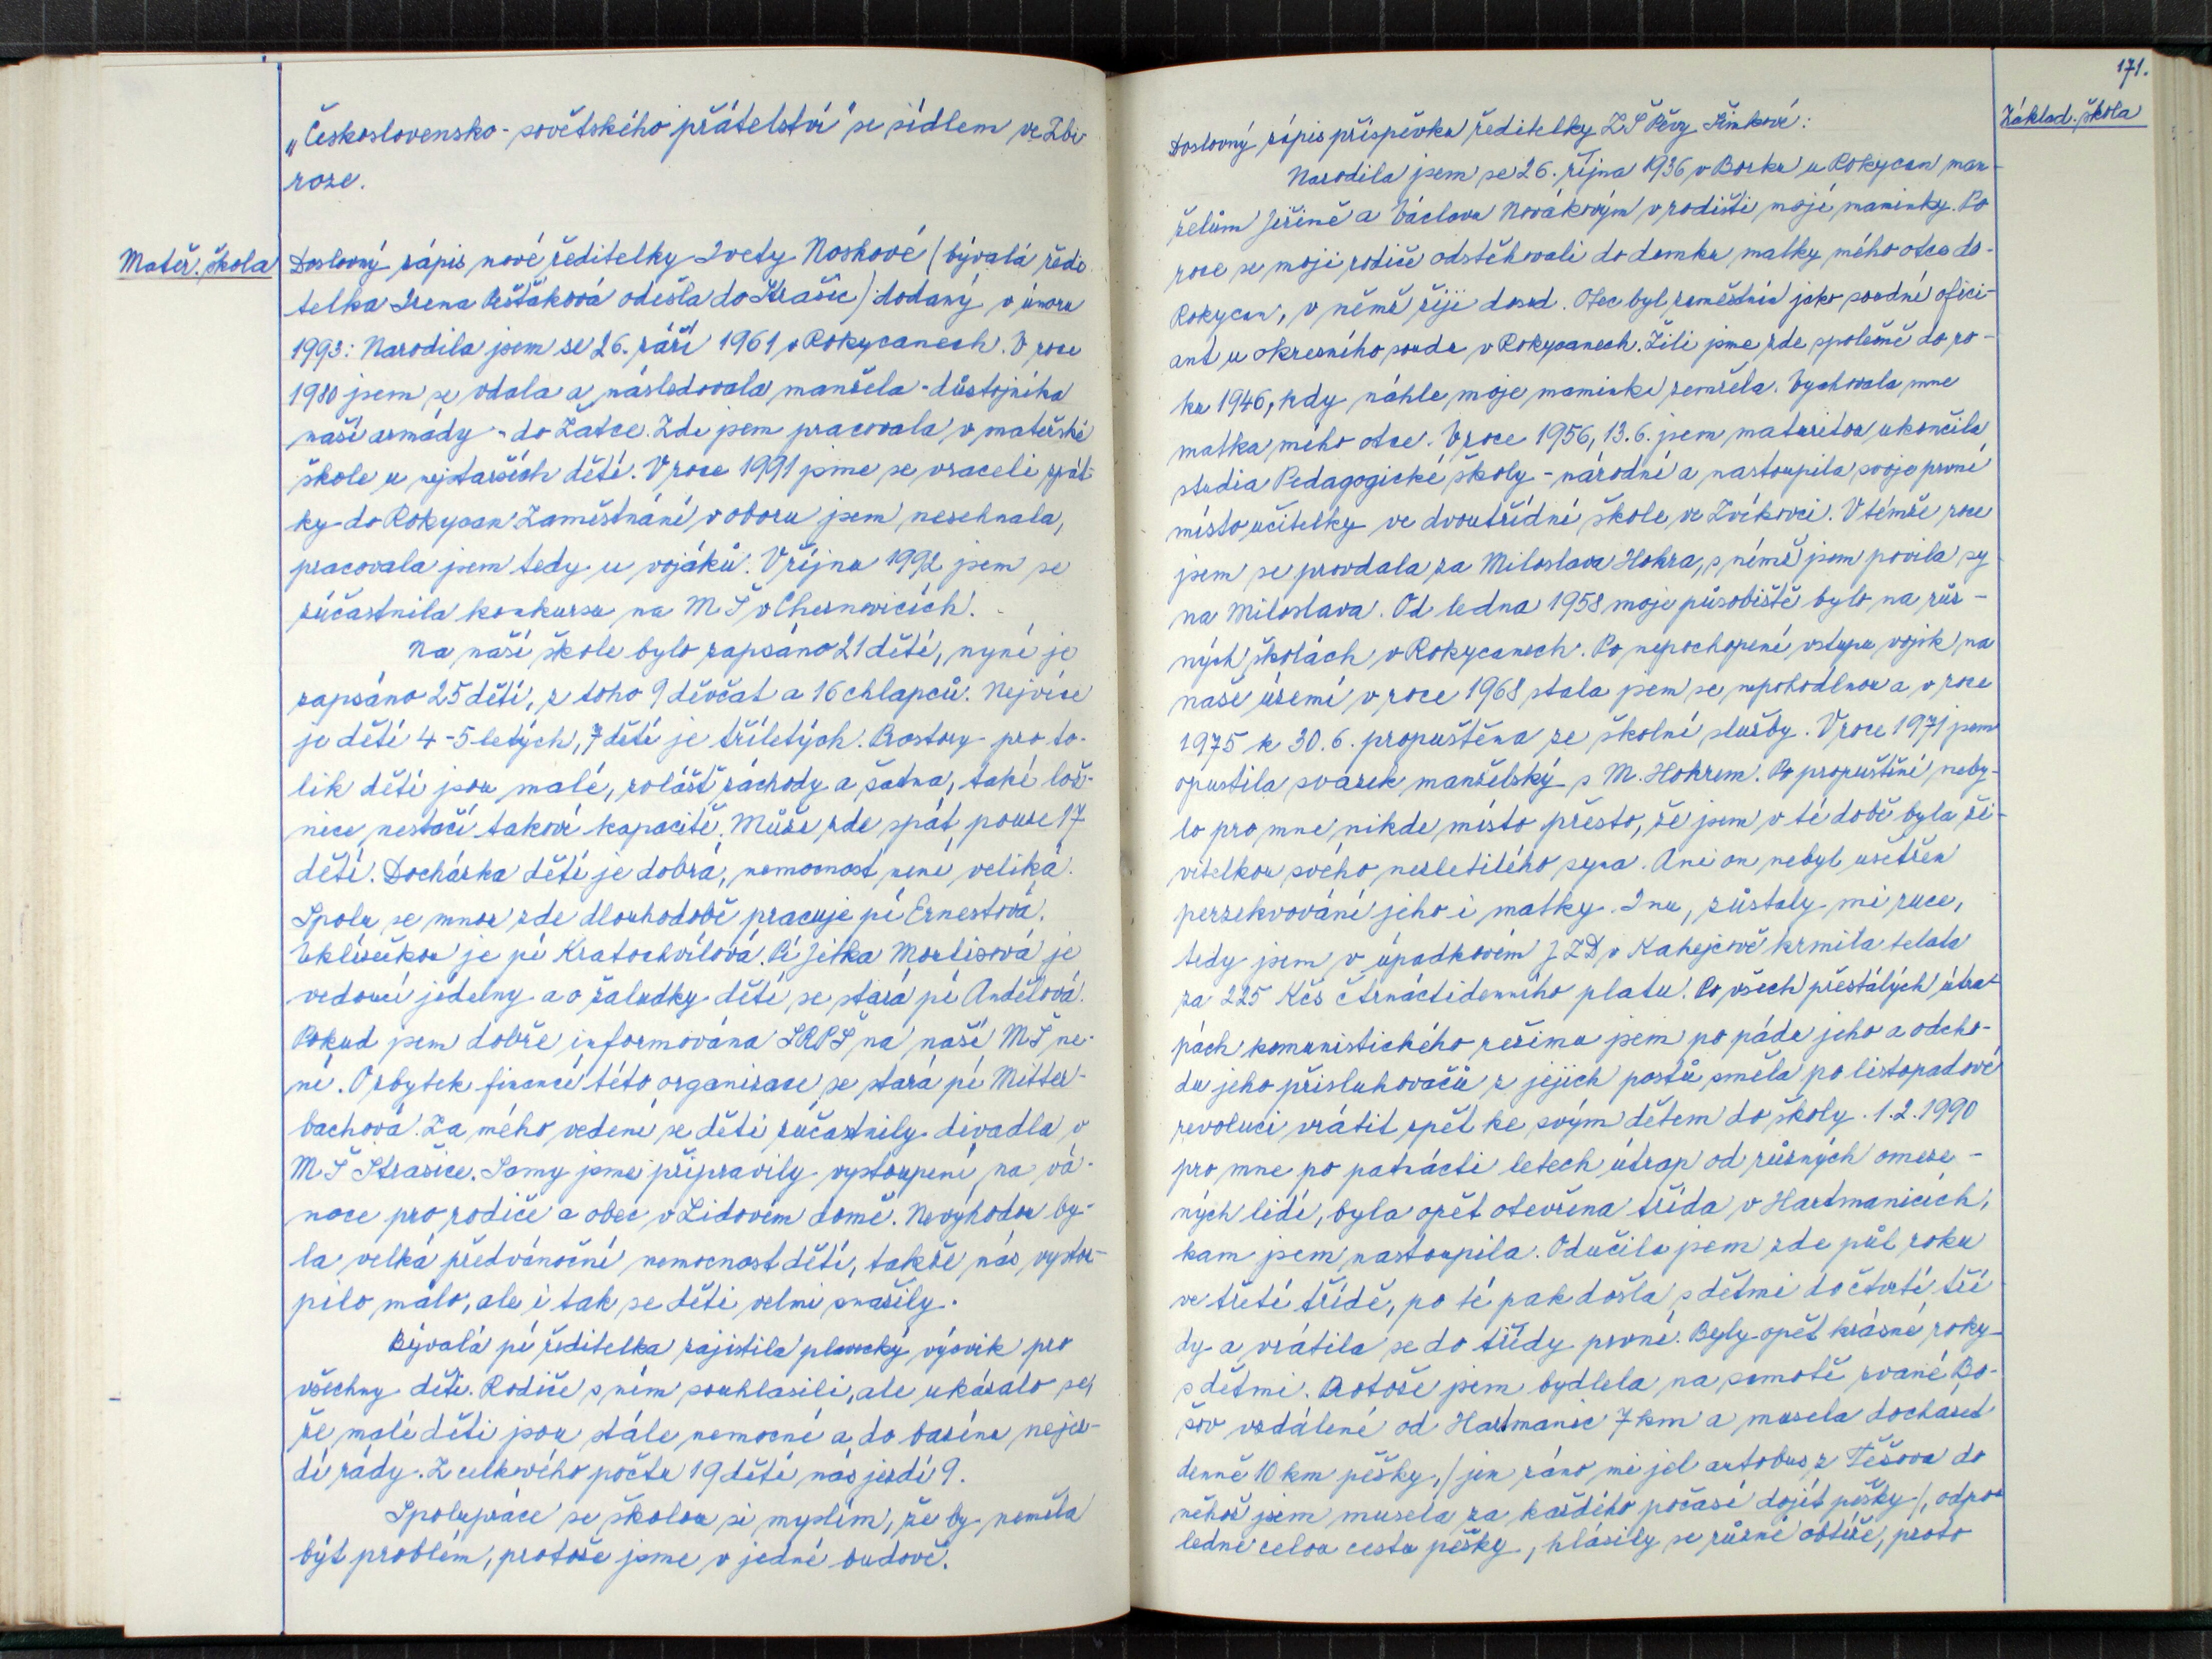 „Československo-sovětského přátelství" se sídlem ve Zbi-
roze.
Mateř. škola
Doslovný zápis nové ředitelky Ivety Noskové /bývalá ředi-
telka Irena Pešťáková odešla do Strašic/ dodaný v únoru
1993: Narodila jsem se 26. září 1961 v Rokycanech. V roce
1980 jsem se vdala a následovala manžela - důstojníka
naší armády - do Žatce. Zde jsem pracovala v mateřské
škole u nejstarších dětí. V roce 1991 jsme se vraceli zpát-
ky do Rokycan. Zaměstnání v oboru jsem nesehnala,
pracovala jsem tedy u vojáků. V říjnu 1992 jsem se
zúčastnila konkursu na MŠ v Cheznovicích.
Na naší škole bylo zapsáno 21 dětí, nyní je
zapsáno 25 dětí, z toho 9 děvčat a 16 chlapců. Nejvíce
je dětí 4-5 letých, 7 dětí je tříletých. Prostory pro to-
lik dětí jsou malé, zvlášť záchody a šatna, také lož-
nice nestačí takové kapacitě. Může zde spát pouze 17
dětí. Docházka dětí je dobrá, nemocnost není veliká.
Spolu se mnou zde dlouhodobě pracuje pí Ernestová.
Uklízečkou je pí Kratochvílová. Pí Jitka Mortisová je
vedoucí jídelny a o žaludky dětí se stará pí Andělová.
Pokud jsem dobře informována SRPŠ na naší MŠ ne-
ní. O zbytek financí této organizace se stará pí Mitter-
bachová. Za mého vedení se děti zúčastnily divadla v
MŠ Strašice. Samy jsme připravily vystoupení na vá-
noce pro rodiče a obec v Lidovém domě. Nevýhodou by-
la velká předvánoční nemocnost dětí, takže nás vystou-
pilo málo, ale i tak se děti velmi snažily.
Bývalá pí ředitelka zajistila plavecký výcvik pro
všechny děti. Rodiče s ním souhlasili, ale ukázalo se,
že malé děti jsou stále nemocné a do bazénu nejez-
dí rády. Z celkového počtu 19 dětí nás jezdí 9.
Spolupráce se školou si myslím, že by neměla
být problém, protože jsme v jedné budově.
171.
Základ. škola
Doslovný zápis příspěvku ředitelky ZŠ Věry Šimkové:
Narodila jsem se 26. října 1936 v Borku u Rokycan man-
želům Jiřině a Václavu Novákovým v rodišti mojí maminky. Po
roce se moji rodiče odstěhovali do domku matky mého otce do
Rokycan, v němž žiji dosud. Otec byl zaměstnán jako soudní ofici-
ant u okresního soudu v Rokycanech. Žili jsme zde společně do ro-
ku 1946, kdy náhle moje maminka zemřela. Vychovala mne
matka mého otce. V roce 1956, 13.6. jsem maturitou ukončila
studia Pedagogické školy - národní a nastoupila svoje první
místo učitelky ve dvoutřídní škole ve Zvíkovci. V témže roce
jsem se provdala za Miloslava Hokra, s nímž jsem povila sy-
na Miloslava. Od ledna 1958 moje působiště bylo na růz-
ných školách v Rokycanech. Po nepochopení vstupu vojsk na
naše území v roce 1968 stala jsem se nepohodlnou a v roce
1975 k 30.6. propuštěna ze školní služby. V roce 1971 jsem
opustila svazek manželský s M. Hokrem. Po propuštění neby-
lo pro mne nikde místo přesto, že jsem v té době byla ži-
vitelkou svého nezletilého syna. Ani on nebyl ušetřen
perzekvování jeho i matky. Inu, zůstaly mi ruce,
tedy jsem v úpadkovém JZD v Kakejcově krmila telata
za 225 Kčs čtrnáctidenního platu. Po všech přestálých útra-
pách komunistického režimu jsem po pádu jeho a odcho-
du jeho přisluhovačů z jejich postů směla po listopadové
revoluci vrátit zpět ke svým dětem do školy. 1.2.1990
pro mne po patnácti letech útrap od různých omeze-
ných lidí, byla opět otevřena třída v Hartmanicích,
kam jsem nastoupila. Odučila jsem zde půl roku
ve třetí třídě, po té pak došla s dětmi do čtvrté tří-
dy a vrátila se do třídy první. Byly opět krásné roky
s dětmi. Protože jsem bydlela na samotě zvané Bo-
šov vzdálené od Hartmanic 7 km a musela docházet
denně 10 km pěšky, /jen ráno mi jel autobus z Těšova do
něhož jsem musela za každého počasí dojít pěšky/, odpo-
ledne celou cestu pěšky, hlásily se různé obtíže, proto